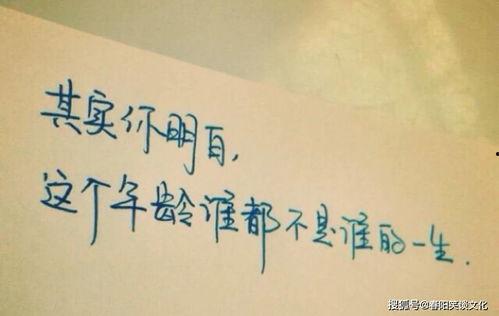 其实你明白,
这个年龄谁都不是谁的一生.
搜狐号@春阳笑谈文化